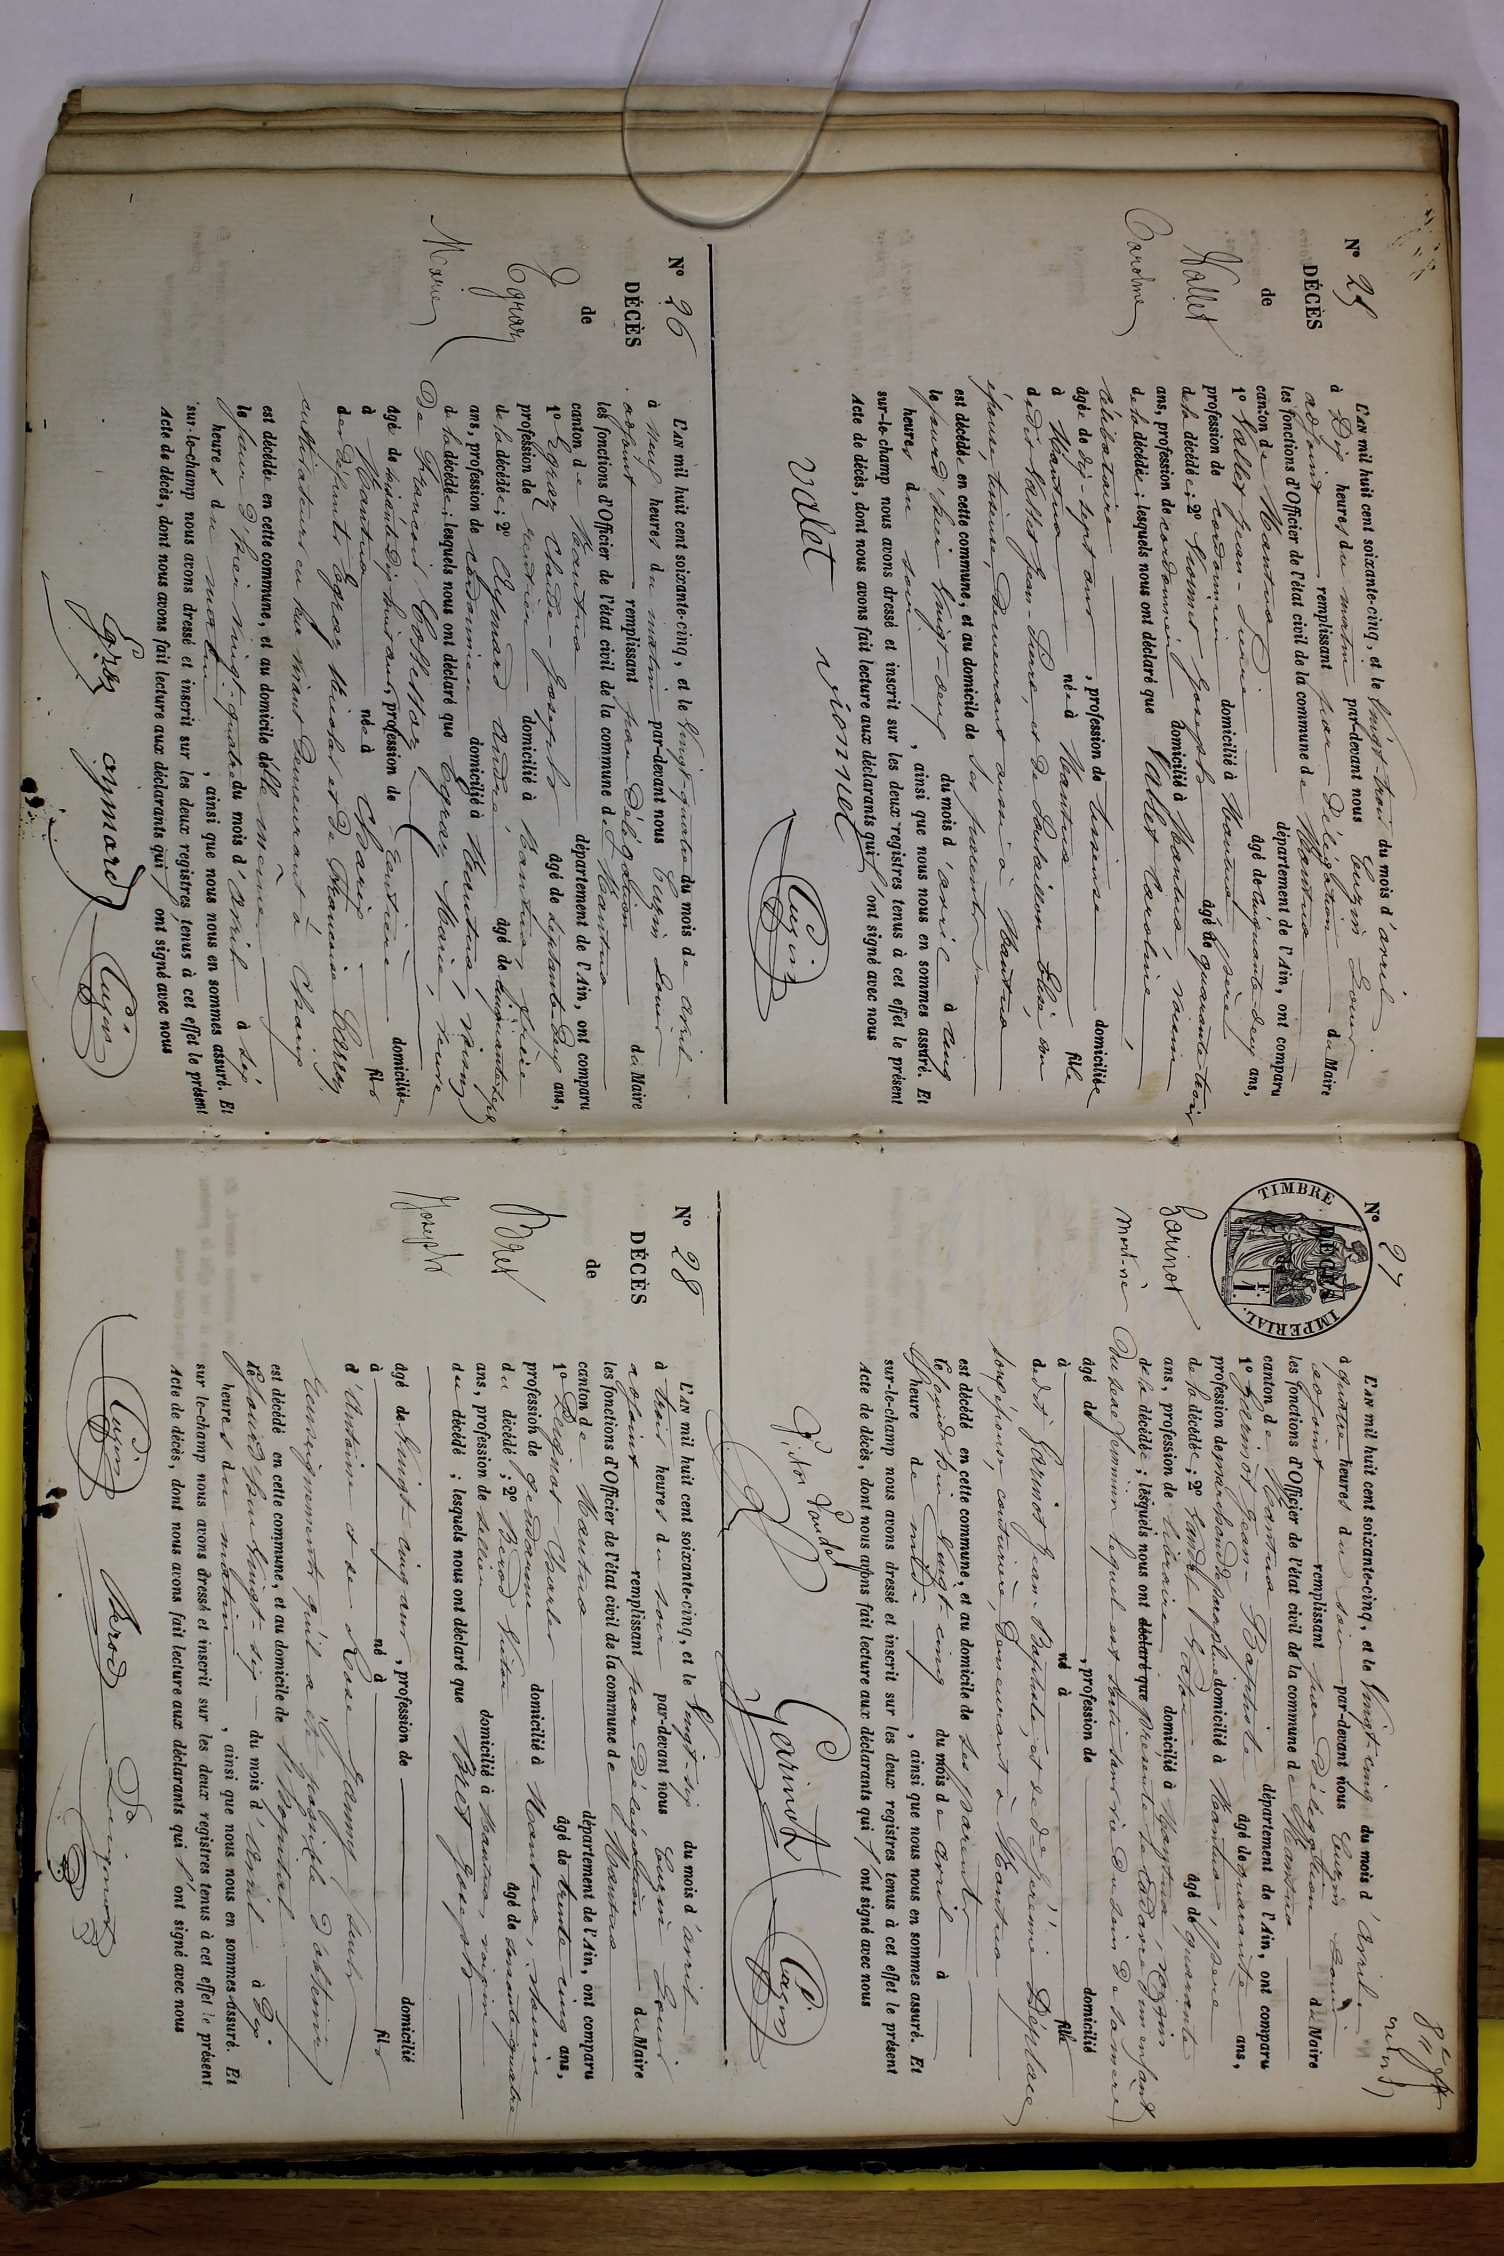 N° 25
DÉCÈS
de
Vallet
Caroline
L'AN mil huit cent soixante-cinq, et le Vingt-trois du mois d'avril
à Dix heures du matin par-devant nous Cugin Louis
adjoint remplissant par Délégation du Maire
les fonctions d'Officier de l'état civil de la commune de Nantua
canton de Nantua département de l'Ain, ont comparu
1° Vallet Jean-Pierre âgé de Cinquante-deux ans,
profession de cordonnier domicilié à Nantua, père
de la décédée; 2° Vionnet Joseph âgé de quarante-trois
ans, profession de cordonnier domicilié à Nantua, voisin
de la décédée; lesquels nous ont déclaré que Vallet Caroline
célibataire
âgée de dix-sept ans, profession de tisseuse domiciliée
à Nantua née à Nantua fille
dudit Vallet Jean-Pierre, et de son
épouse, tisseuse, demeurant aussi à Nantua
est décédée en cette commune, et au domicile de ses parents
le jourd'hui Vingt-deux du mois d'avril à cinq
heures du soir, ainsi que nous nous en sommes assuré. Et
sur-le-champ nous avons dressé et inscrit sur les deux registres tenus à cet effet le présent
Acte de décès, dont nous avons fait lecture aux déclarants qui l'ont signé avec nous
valet vionnet Cugin
N° 26
DÉCÈS
de
Egraz
Marie
L'AN mil huit cent soixante-cinq, et le Vingt-quatre du mois de avril
à neuf heures du matin par-devant nous Cugin Louis
adjoint remplissant par Délégation du Maire
les fonctions d'Officier de l'état civil de la commune de Nantua
canton de Nantua département de l'Ain, ont comparu
1° Egraz Claude-Joseph âgé de Septante-deux ans,
profession de rentier domicilié à Nantua, frère
de la décédée; 2° Aymard André, âgé de Cinquante-sept
ans, profession de cordonnier domicilié à Nantua, voisin
de la décédée; lesquels nous ont déclaré que Egraz Marie, veuve
De François
âgé de soixante-Dix-huit ans, profession de rentière domiciliée
à Nantua née à Charix fille
des défunts Egraz Nicolas et de Françoise
cultivateurs en leur vivant demeurant à Charix
est décédée en cette commune, et au domicile d'elle même
le jour d'hier vingt-quatre du mois d'avril à six
heures du matin, ainsi que nous nous en sommes assuré. Et
sur-le-champ nous avons dressé et inscrit sur les deux registres tenus à cet effet le présent
Acte de décès, dont nous avons fait lecture aux déclarants qui l'ont signé avec nous
Egraz aymard Cugin
N° 27
TIMBRE IMPERIAL
1 F.
DÉCÈS
de
Garinot
mort-né
L'AN mil huit cent soixante-cinq, et le Vingt-cinq du mois d'avril
à quatre heures du soir par-devant nous Cugin Louis
adjoint remplissant par Délégation du Maire
les fonctions d'Officier de l'état civil de la commune de Nantua
canton de Nantua département de l'Ain, ont comparu
1° Garinot Jean-Baptiste âgé de quarante ans,
profession de marchand de parapluies domicilié à Nantua, père
de la décédée; 2° Vandel Victor âgé de quarante
ans, profession de libraire domicilié à Nantua, voisin
de la décédée; lesquels nous ont déclaré que présente le cadavre d'un enfant
Du sexe féminin lequel est sorti sans vie du sein de sa mère
âgé de, profession de domicilié
à né à fille
dudit Garinot Jean-Baptiste, et de
son épouse, couturière, Demeurant à Nantua
est décédé en cette commune, et au domicile de ses parents
le jourd'hui Vingt-cinq du mois de avril à
heure de midi, ainsi que nous nous en sommes assuré. Et
sur-le-champ nous avons dressé et inscrit sur les deux registres tenus à cet effet le présent
Acte de décès, dont nous avons fait lecture aux déclarants qui l'ont signé avec nous
Victor Vandel Garinot Cugin
N° 28
DÉCÈS
de
Bret
Joseph
L'AN mil huit cent soixante-cinq, et le Vingt-six du mois d'avril
à trois heures du soir par-devant nous Cugin Louis
adjoint remplissant par Délégation du Maire
les fonctions d'Officier de l'état civil de la commune de Nantua
canton de Nantua département de l'Ain, ont comparu
1° Charles âgé de trente-cinq ans,
profession de domicilié à Nantua, voisin
du décédé; 2° Berod Victor âgé de soixante-quatre
ans, profession de sellier domicilié à Nantua, voisin
du décédé; lesquels nous ont déclaré que Bret Joseph
âgé de Vingt-cinq ans, profession de domicilié
à né à fils
d'Antoine et de Rose, seuls
renseignements qu'il a été possible d'obtenir
est décédé en cette commune, et au domicile de l'hôpital
le jourd'hui Vingt-six du mois d'avril à Dix
heures du matin, ainsi que nous nous en sommes assuré. Et
sur-le-champ nous avons dressé et inscrit sur les deux registres tenus à cet effet le présent
Acte de décès, dont nous avons fait lecture aux déclarants qui l'ont signé avec nous
Cugin Berod